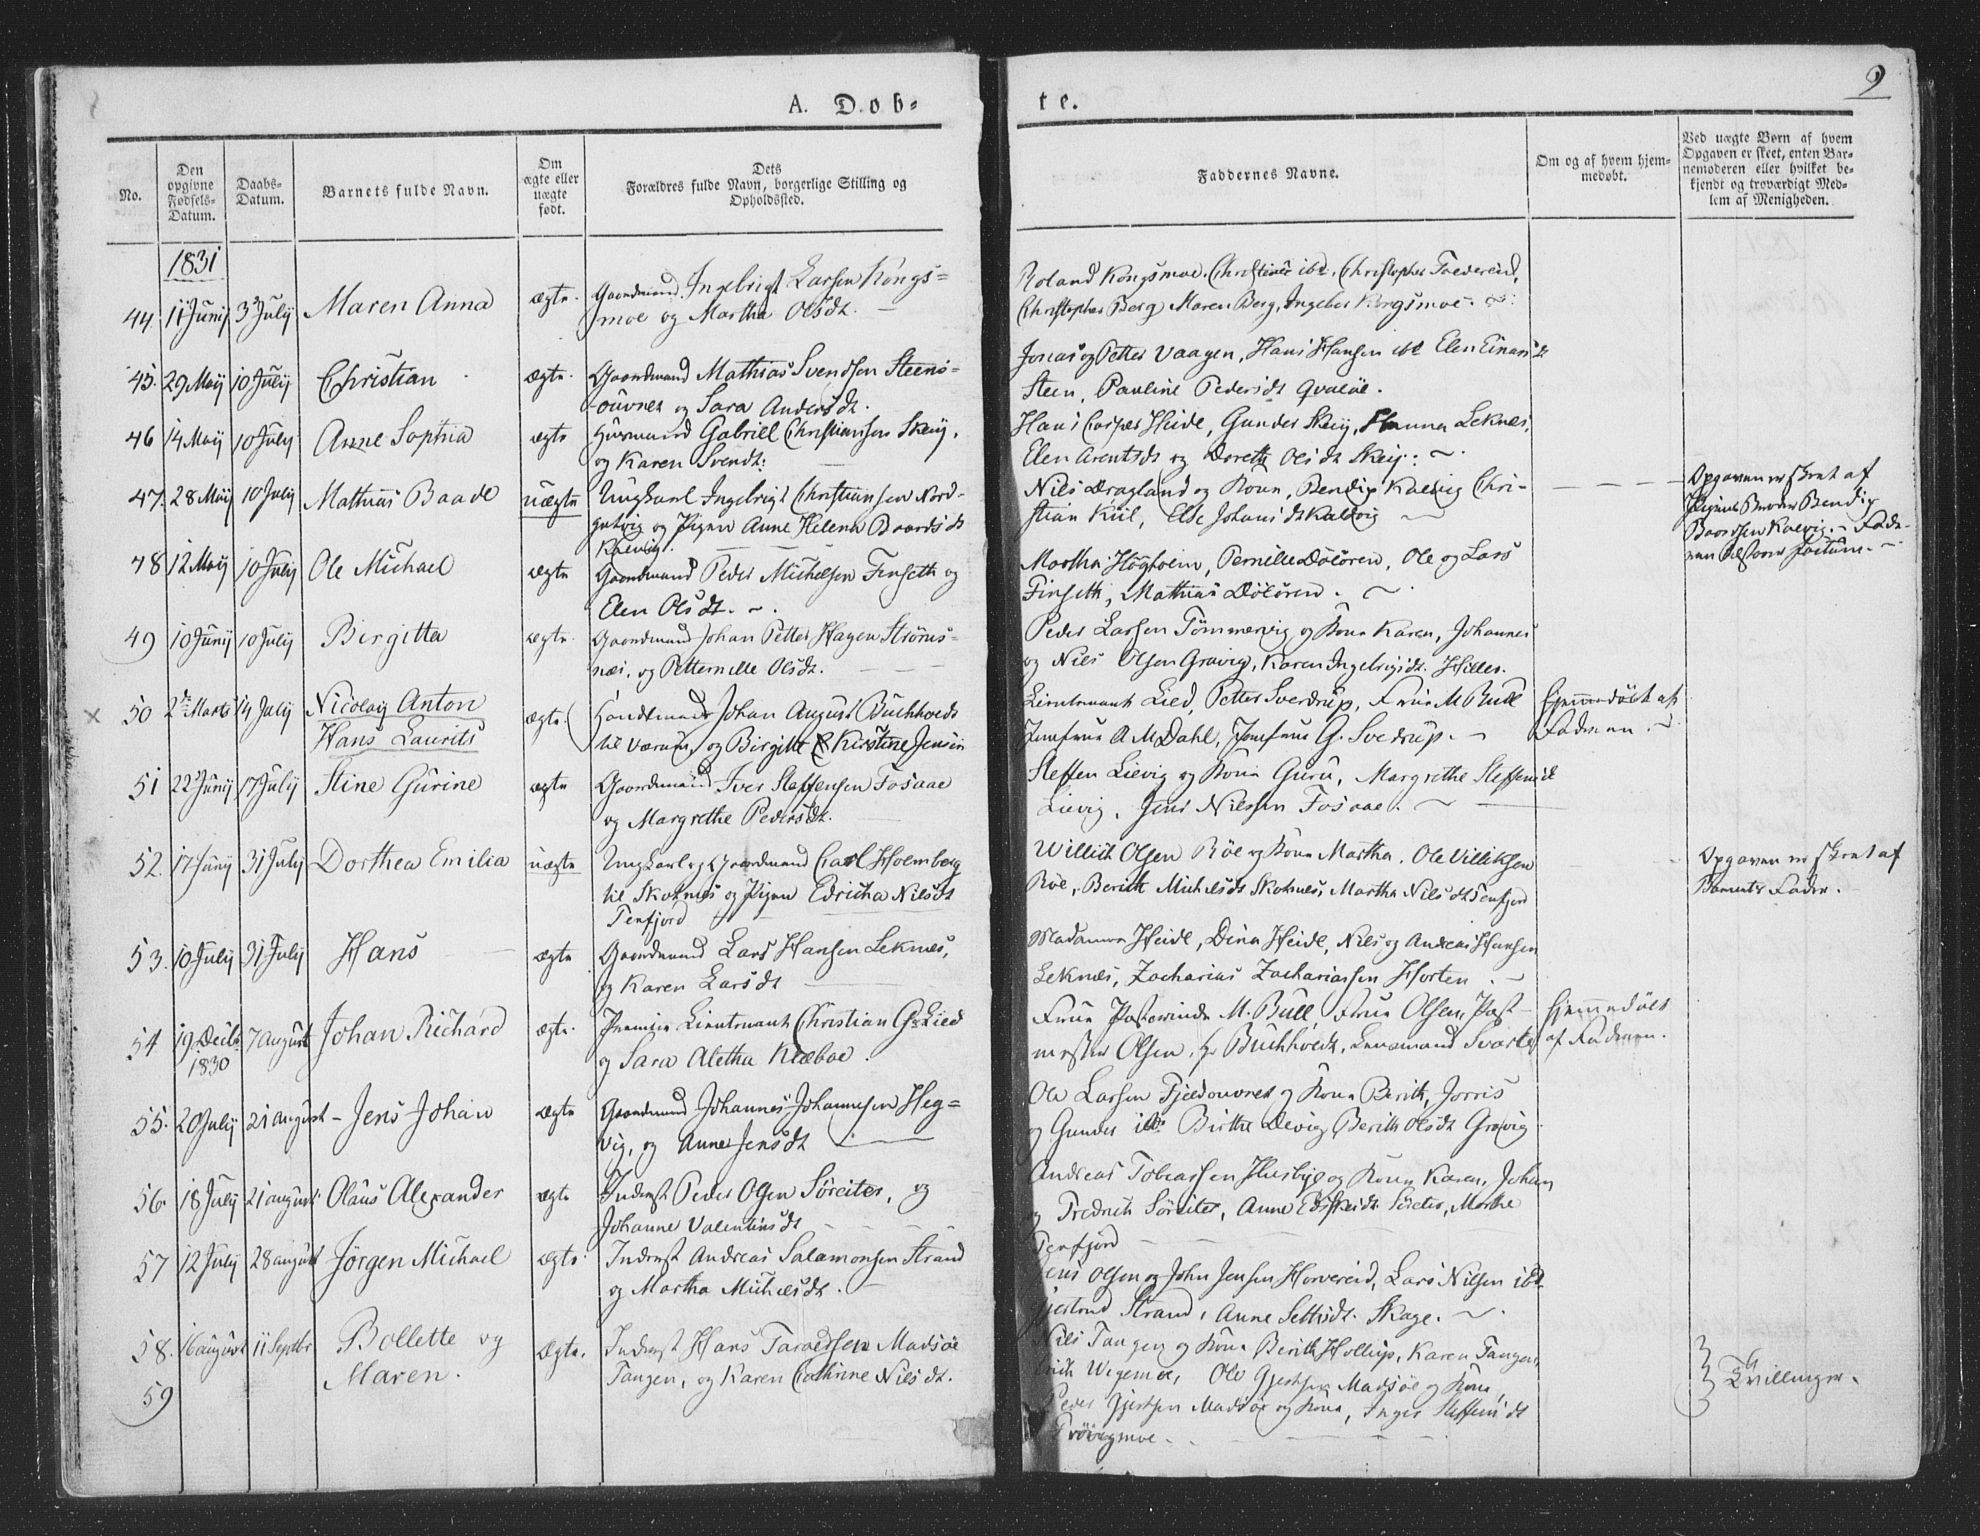 A. Døb=
te.
9
No.
Den opgivne Fødsels-Datum.
Daabs-Datum.
Barnets fulde Navn.
Om ægte eller uægte født.
Dets Forældres fulde Navn, borgerlige Stilling og Opholdssted.
Faddernes Navne.
Om og af hvem hjemmedøbt.
Ved uægte Børn af hvem Opgaven er skeet, enten Barnemoderen eller hvilket bekjendt og troværdigt Medlem af Menigheden.
1831
44. 11 Junij 3 July Maren Anna ægte. Gaardmand Ingebrigt Larsen Kongs=
moe og Martha Olsdt.
Roland Kongsmoe. Christine ibd. Christopher
Christopher Berg Maren Berg, Kongsmoe.
45. 29 Maij 10 July Christian ægte. Gaardmand Mathias Svendsen Steens=
og Sara Andersdt.
Jonas og Petter Vaagen, Hans Hansen ibd Elen
Steen, Pauline Pedersdt Qvaløe.
46 14 Maij 10 July Anne Sophia ægte Huusmand Gabriel Christiansen Skeij,
og Karen Svendt:
Hans Heide, Gunder Skeij, Hanna Leknes,
Elen Arentsdt og Doreth Olsdt Skeij.
47. 28 Maij 10 July Mathias Baade uægte Ungkarl Ingebrigt Christiansen Nord-
og Pigen Anne Helena Baardsdt
Kalvig.
Nils Dragland og Kone, Bendix Kalvig Chri-
stian Kiil, Else Johansdt Kalvig
Opgaven er skeet af
Pigens Broder Bendix
Baardsen Kalvig. -
48 12 Maij 10 July Ole Michael ægte Gaardmand Peder Michelsen Finseth og
Elen Olsdt.
Martha Høgheim, Pernille Døløren, Ole og Lars
Finseth, Mathias Døløren.
49 10 Junij 10 July Birgitta ægte. Gaardmand Johan Petter Hagen Strøms=
næs, og Petternille Olsdt.
Peder Larsen Tømmervig og Kone Karen, Johannes
og Nils Olsen Gravig, Karen Ingebrigtsdt. Hiller.
50 2de Marts 14 July Nicolay Anton
Hans Laurits
ægte. Johan August Buchholdt
til Værum, og Birgitte Kirstine Jensen
Lieutenant Lied, Petter Sverdrup, Frue M Bull
Jomfrue A M Dahl, Jomfrue G. Sverdrup.
Hjemmedøbt af
Faderen.
51 22 Junij 17 July Stine Gurine ægte Gaardmand Iver Steffensen Fosaae
og Margrethe Pedersdt.
Steffen Lievig og Kone Guru, Margrethe Steffensdt
Lievig, Jens Nilssen Fosaae.
52. 17 Junij 31 July Dorthea Emilia uægte Ungkarl og Gaardmand Carl Holmberg
til Skotnes og Pigen Edricha Nilsdt
Tenfjord
Willich Olsen Røe og Kone Martha. Ole Villiksen
Røe, Berith Michelsdt Skotnes, Martha Nilsdt Tenfjord
Opgaven er skeet af
Barnets Fader.
53. 10 July 31 July Hans ægte Gaardmand Lars Hansen Leknes,
og Karen Larsdt
Madame Heide, Dina Heide, Nils og Andreas Hansen
Leknes, Zacharias Zachariassen Horten.
54 19 Decbr 1830 7 August Johan Richard ægte. Premier Lieutenant Christian G. Lied
og Sara Aletha Klæboe.
Frue Pastorinde M. Bull, Frue Olsen, Post-
mester Olsen, Hr Buchholdt, Lensmand
Hjemmedøbt
af Faderen.
55. 20 July 21 August Jens Johan ægte Gaardmand Johannes Johannesen Heg=
vig, og Anne Jensdt
Ole Larsen og Kone Berith, Jorris
og Gunder ibd. Birthe Devig, Berith Olsdt Gravig
56. 18 July 21 August Olaus Alexander ægte Inderst Peder Olsen Søreiter, og
Johanne Valentinsdt
Andreas Tobiassen Husbye og Kone Karen, Johan
og Fredrich Søreiter, Anne Søreiter, Marthe
Tenfjord
57 12 July 28 August Jørgen Michael ægte Inderst Andreas Salamonsen Strand
og Martha Michelsdt.
Jens Olsen og John Jensen Horvereid, Lars Nilsen ibd
Gjertrud Strand, Anne Skage.
58. 16 August 11 Septbr Bollette og ægte. Inderst Hans Madsøe
59 Maren. Tangen, og Karen Cathrine Nilsdt.
Nils Tangen og Kone Berith Hollup, Karen Tangen,
Ole Gjertsen Madsøe og Kone,
Peder Gjertsen Madsøe og Kone, Inger Steffensdt
Tvillinger.